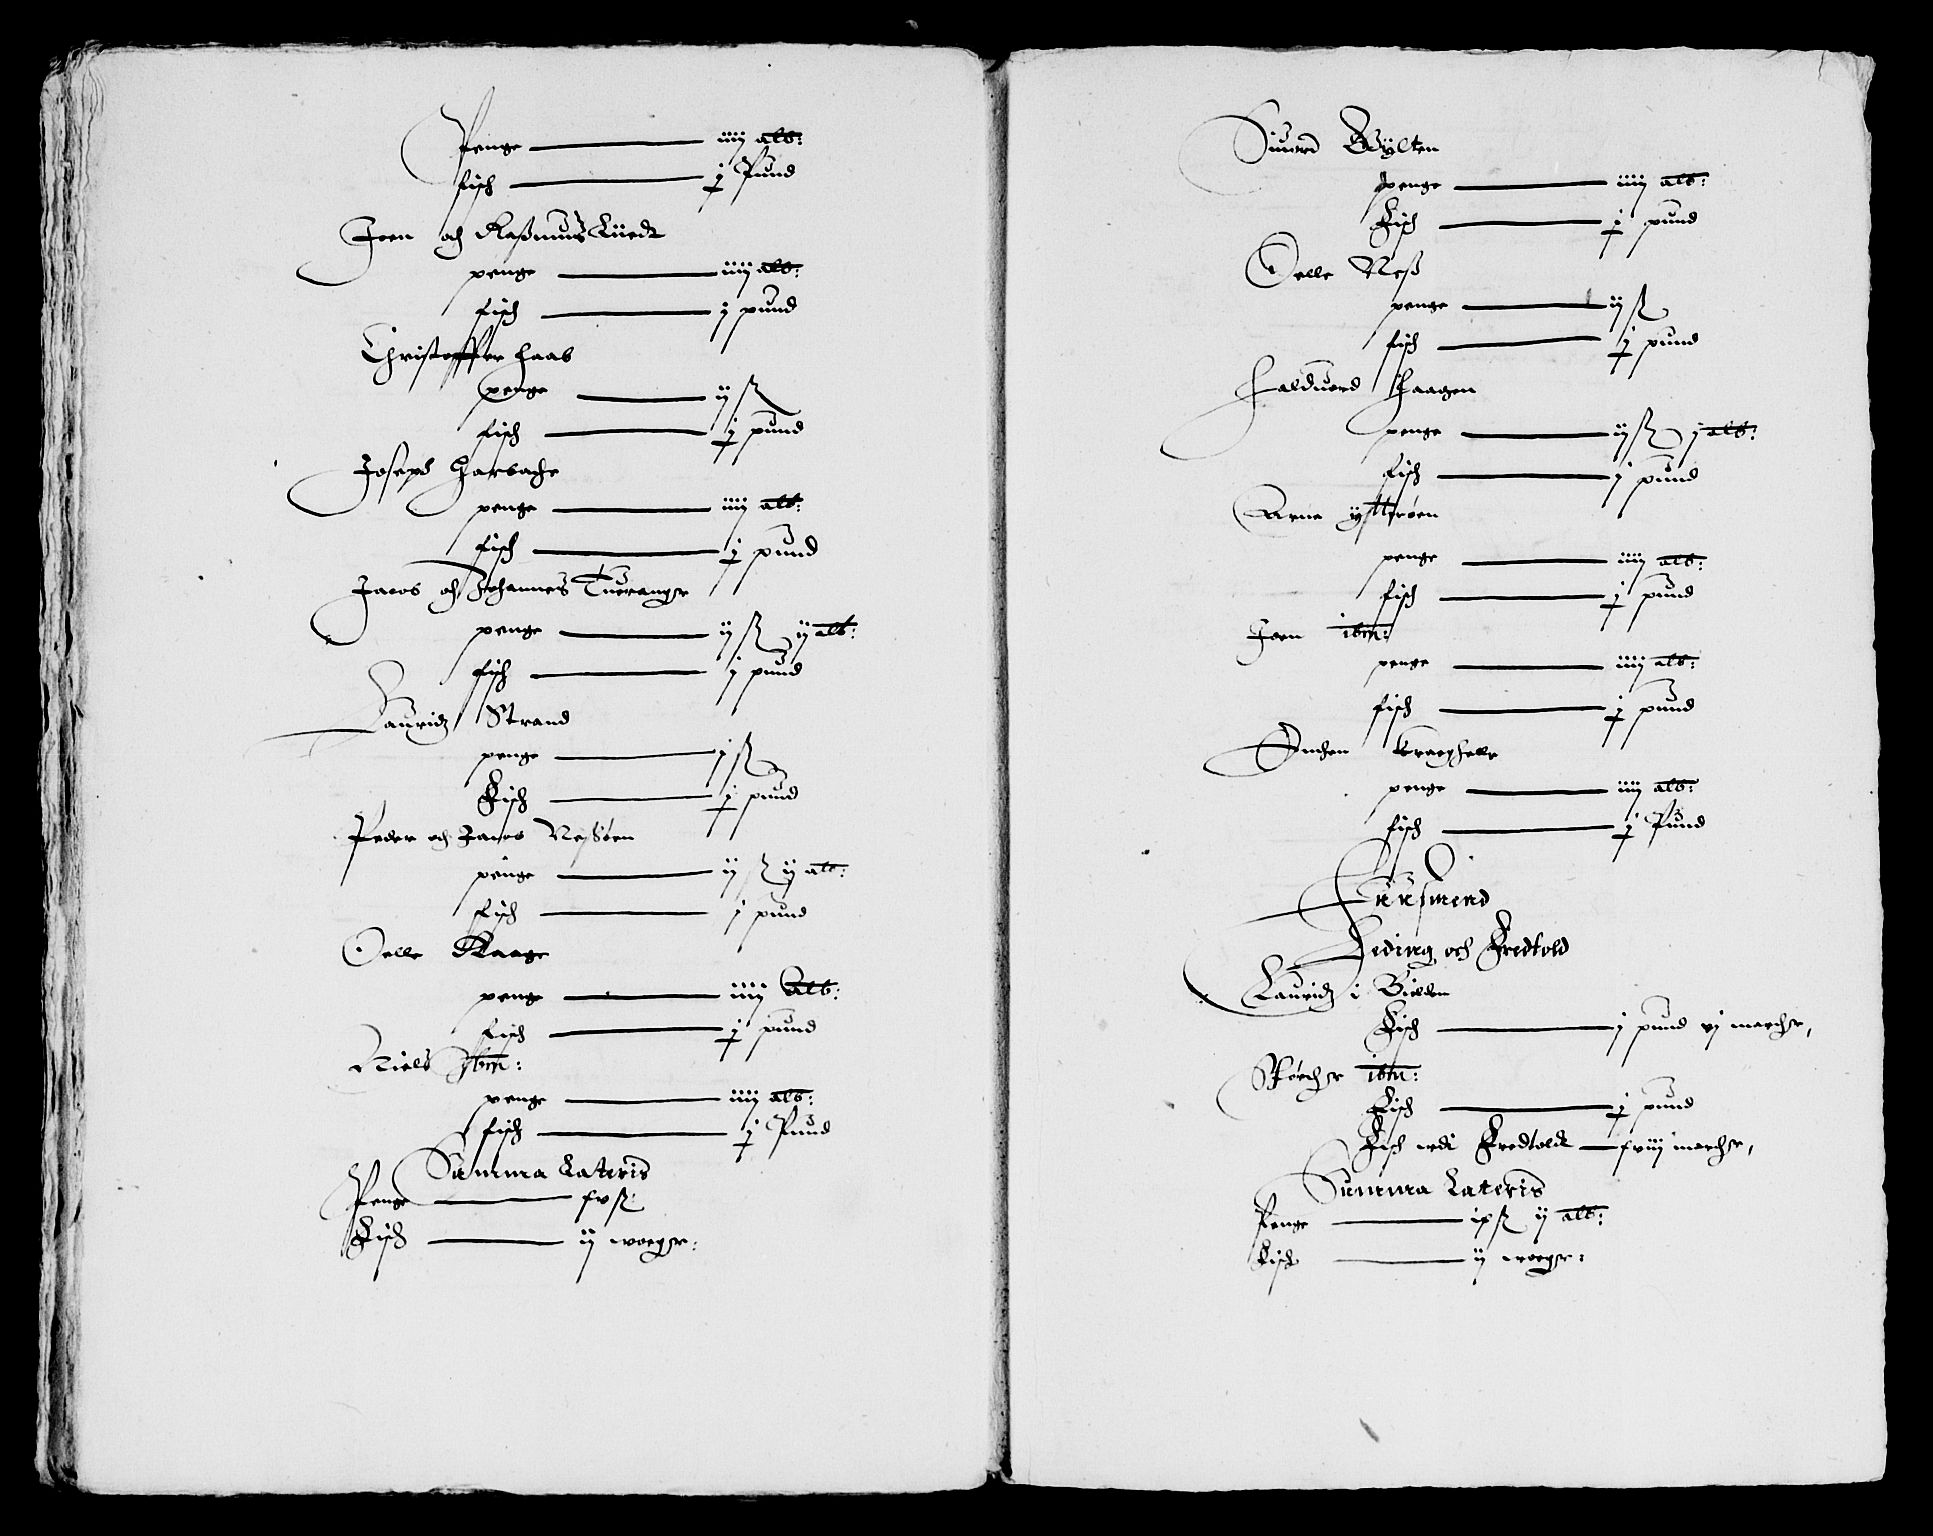 Penge — iiij alb:
fisch — j Pund
Joen och Raßmus Liiedt
penge — iiij alb:
fisch — j pund
Christoffer Haab
penge — ij ß
fisch — j pund
Joseph Harbache
penge — iiij alb:
fisch — j pund
Jacob och Johannes Tuerange
penge — ij ß ij alb:
fisch — j pund
Lauridz Strand
penge — j ß
Fisch — j pund
Peder och Jacob Neßøen
penge — ij ß ij alb:
fisch — j pund
Oelle Kaage
penge — iiij alb:
fisch — j pund
Niels Ibm:
penge — iiij alb:
fisch — j Pund
Summa Lateris
Penge — xv ß
Fisch — ij woeger:
Siuord Bylten
penge — iiij alb:
Fisch — j pund
Oelle Neß
penge — ij ß
fisch — j pund
Halduord Haagen
penge — ij ß j alb:
fisch — j pund
Arne ytterøen
penge — iiij alb:
fisch — j pund
Joen ibm:
penge — iiij alb:
fisch — j pund
penge — iiij alb:
fisch — j Pund
Huusmend
Leding och Fredtold
Lauridz i
Fisch — j pund vj marcher,
ibm:
Fisch — j pund
Fisch Fredtoldt — xviij marcher,
Summa Lateris
Penge — ix ß ij alb:
Fisch — ij woeger: